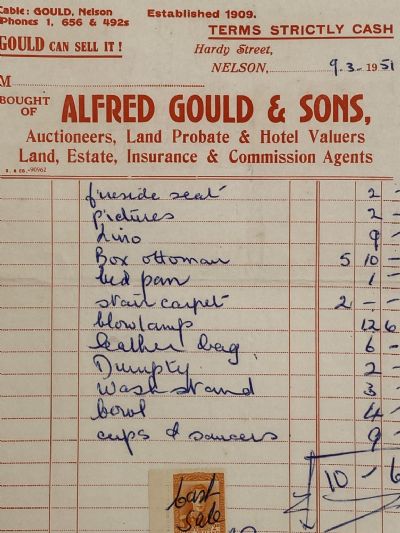 Cable: GOULD, Nelson
Phones 1, 656 & 492s
Established 1909.
TERMS STRICTLY CASH
GOULD CAN SELL IT!
Hardy Street,
NELSON, 9.3.1951
M
BOUGHT OF ALFRED GOULD & SONS,
Auctioneers, Land Probate & Hotel Valuers
Land, Estate, Insurance & Commission Agents
fireside seat 2 -
pictures 2 -
Lino 9 -
Box ottoman 5 10 -
bed pan 1 -
stair carpet 2 - -
blowlamps 12 6
leather bag 6 -
Dumpty 2 -
wash stand 3 -
bowl 4 -
cups & saucers 9 -
10 - 6
Cash
Sale